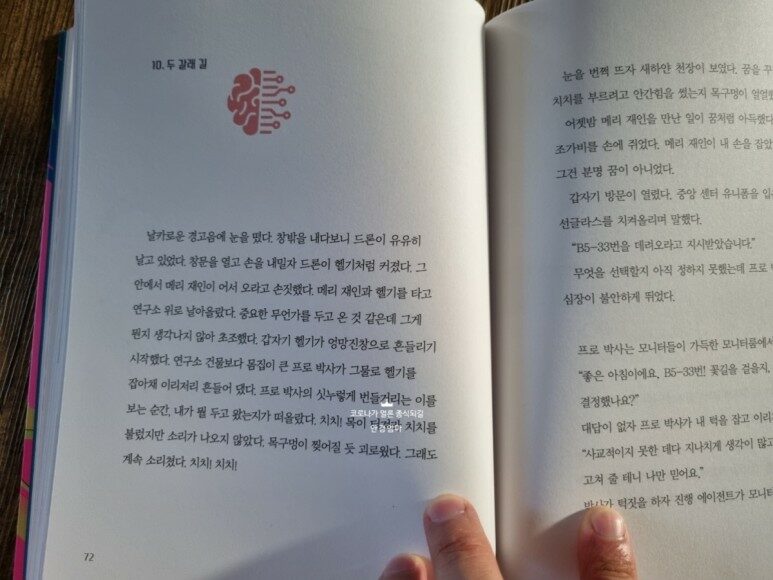 10. 두 갈래 길
날카로운 경고음에 눈을 떴다. 창밖을 내다보니 드론이 유유히
날고 있었다. 창문을 열고 손을 내밀자 드론이 헬기처럼 커졌다. 그
안에서 메리 재인이 어서 오라고 손짓했다. 메리 재인과 헬기를 타고
연구소 위로 날아올랐다. 중요한 무언가를 두고 온 것 같은데 그게
뭔지 생각나지 않아 초조했다. 갑자기 헬기가 엉망진창으로 흔들리기
시작했다. 연구소 건물보다 몸집이 큰 프로 박사가 그물로 헬기를
잡아채 이리저리 흔들어 댔다. 프로 박사의 싯누렇게 번들거리는 이를
보는 순간, 내가 뭘 두고 왔는지가 떠올랐다. 치치! 목이 치치를
불렀지만 소리가 나오지 않았다. 목구멍이 찢어질 듯 괴로웠다. 그래도
계속 소리쳤다. 치치! 치치!
코로나가 얼른 종식되길
72
눈을 번쩍 뜨자 새하얀 천장이 보였다. 꿈을
치치를 부르려고 안간힘을 썼는지 목구멍이
어젯밤 메리 재인을 만난 일이 꿈처럼 아득했다
조가비를 손에 쥐었다. 메리 재인이 내 손을 잡았
그건 분명 꿈이 아니었다.
갑자기 방문이 열렸다. 중앙 센터 유니폼을
선글라스를 치켜올리며 말했다.
"B5-33번을 데려오라고 지시받았습니다."
무엇을 선택할지 아직 정하지 못했는데 프로
심장이 불안하게 뛰었다.
프로 박사는 모니터들이 가득한 모니터룸에서
"좋은 아침이에요, B5-33번! 꽃길을 걸을지,
결정했나요?"
대답이 없자 프로 박사가 내 턱을 잡고 이리
"사교적이지 못한 데다 지나치게 생각이 많고
고쳐 줄 테니 나만 믿어요."
박사가 턱짓을 하자 진행 에이전트가 모니터